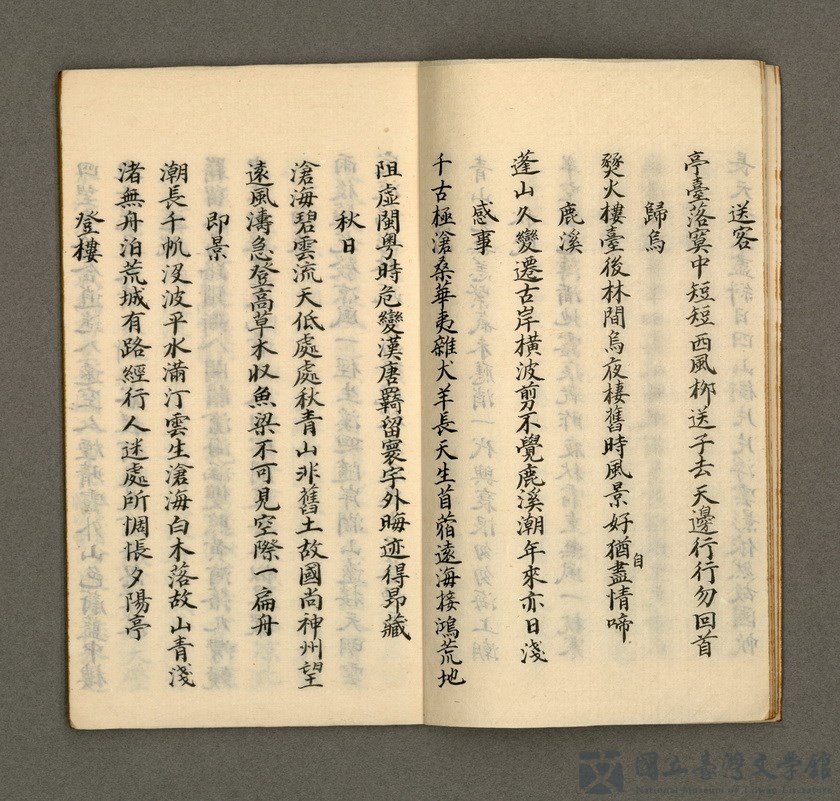 送客
亭臺落寞中短短西風柳送子去天邊行行勿回首
歸烏
燹火樓臺後林間烏夜棲舊時風景好猶盡情啼
自
鹿溪
蓬山久變遷古岸橫波剪不覺鹿溪潮年來亦日淺
感事
千古極滄桑華夷雜犬羊長天生苜蓿遠海接鴻荒地
阻虛閩粤時危變漢唐羇留寰宇外晦迹得昂藏
秋日
滄海碧雲流天低處處秋青山非舊土故國尚神州望
遠風濤急登高草木収魚梁不可見空際一扁舟
即景
潮長千帆沒波平水滿汀雲生滄海白木落故山青淺
渚無舟泊荒城有路經行人迷處所惆悵夕陽亭
登樓
國立臺灣文學館
National Museum of Taiwan Literature